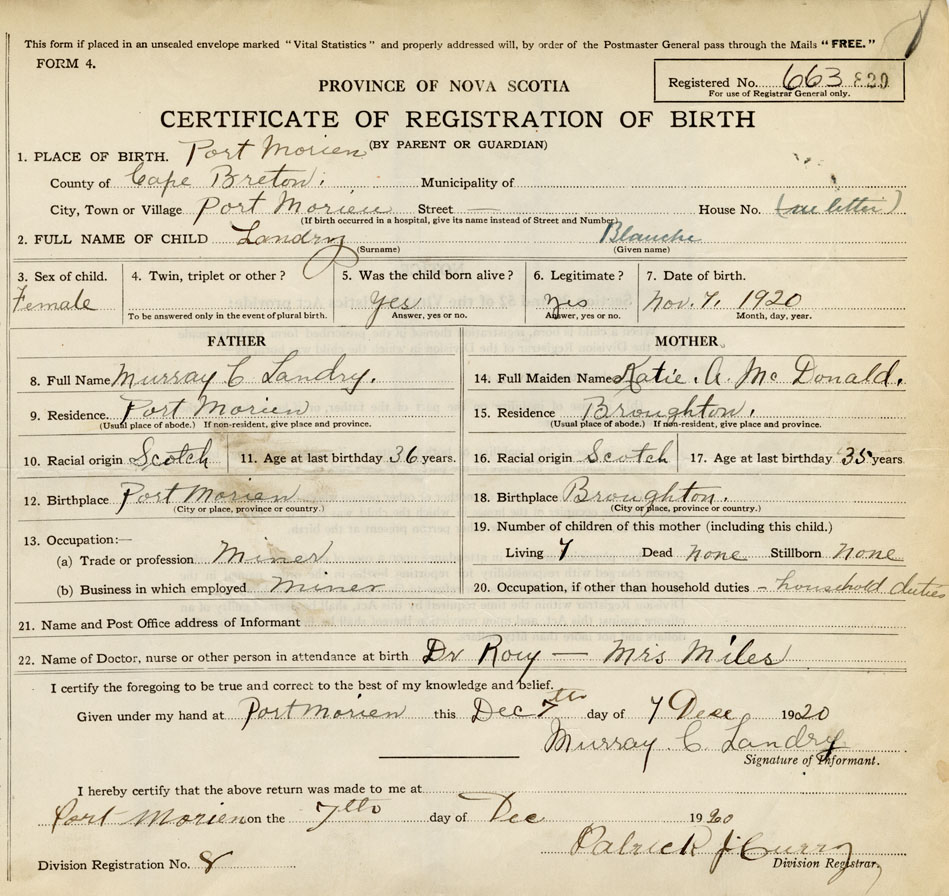 This form if placed in an unsealed envelope marked "Vital Statistics" and properly addressed will, by order of the Postmaster General pass through the Mails "FREE."
FORM 4.
Registered No. 663 820
For use of Registrar General only.
PROVINCE OF NOVA SCOTIA
CERTIFICATE OF REGISTRATION OF BIRTH
(BY PARENT OR GUARDIAN)
1. PLACE OF BIRTH. Port Morien
County of Cape Breton. Municipality of
City, Town or Village Port Morien Street — House No. (see letter)
(If birth occurred in a hospital, give its name instead of Street and Number)
2. FULL NAME OF CHILD Landry Blanche
(Surname) (Given name)
3. Sex of child. 4. Twin, triplet or other? 5. Was the child born alive? 6. Legitimate? 7. Date of birth.
Female Yes Yes Nov. 7, 1920
To be answered only in the event of plural birth. Answer, yes or no. Answer, yes or no. Month, day, year.
FATHER MOTHER
8. Full Name Murray C Landry. 14. Full Maiden Name Katie. A. Mc Donald.
9. Residence. Port Morien 15. Residence Broughton.
(Usual place of abode.) If non-resident, give place and province. (Usual place of abode.) If non-resident, give place and province.
10. Racial origin Scotch 11. Age at last birthday 36 years. 16. Racial origin Scotch 17. Age at last birthday 35 years.
12. Birthplace Port Morien 18. Birthplace Broughton.
(City or place, province or country.) (City or place, province or country.)
13. Occupation:— 19. Number of children of this mother (including this child.)
(a) Trade or profession Miner Living 7 Dead none Stillborn none
(b) Business in which employed Miner 20. Occupation, if other than household duties - household duties
21. Name and Post Office address of Informant
22. Name of Doctor, nurse or other person in attendance at birth Dr Roy — Mrs Miles
I certify the foregoing to be true and correct to the best of my knowledge and belief.
Given under my hand at Port Morien this Dec 7th day of 7 Dese 1920
Murray. C. Landry
Signature of Informant.
I hereby certify that the above return was made to me at
Port Morien on the 7th day of Dec 1920
Patrick J Curry
Division Registration No. 8 Division Registrar.